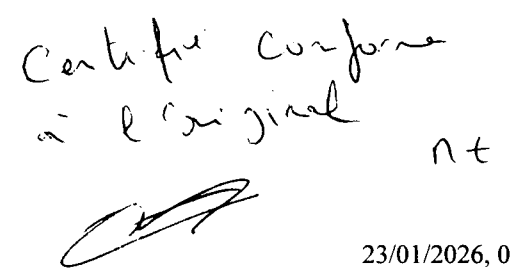 Certifié conforme
à l'original
nt
23/01/2026, 0